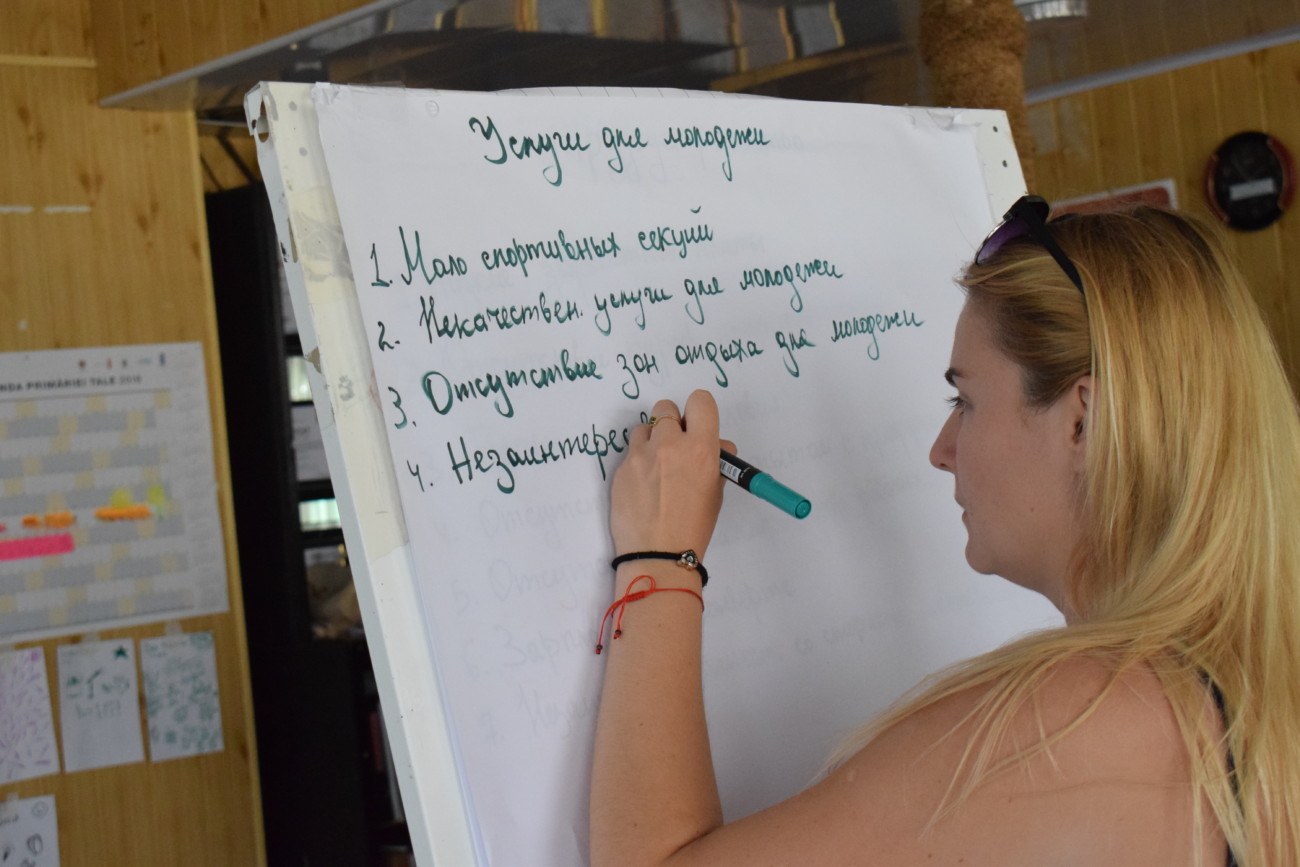 Услуги для молодежи
1. Мало спортивных секций
2. Некачествен. услуги для молодежи
3. Отсутствие зон отдыха для молодежи
4. Незаинтерес
NDA PRIMĂRIEI TALE 2018